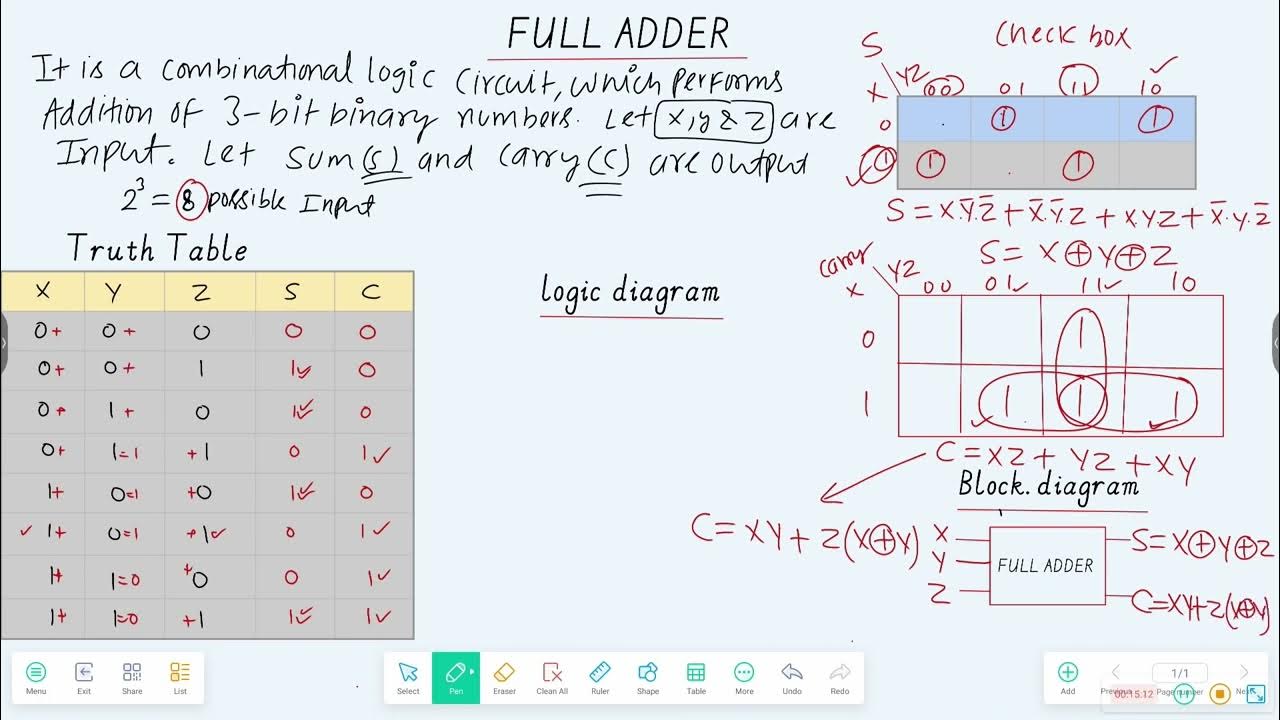 FULL ADDER
It is a combinational logic circuit, which performs
Addition of 3-bit binary numbers. Let x, y & z are
Input. Let sum(s) and carry(c) are output
2³ = 8 possible Input
Truth Table
X Y Z S C
0+ 0+ 0 0 0
0+ 0+ 1 1✓ 0
0+ 1+ 0 1✓ 0
0+ 1=1 +1 0 1✓
1+ 0=1 +0 1✓ 0
✓ 1+ 0=1 +1✓ 0 1✓
1+ 1=0 +0 0 1✓
1+ 1=0 +1 1✓ 1✓
logic diagram
Check box
S
X YZ 00 01 11 10 ✓
0 1 1
✓ 1 1 1
S = X.Y̅.Z̅ + X̅.Y̅.Z + X.Y.Z + X̅.Y.Z̅
S = X⊕Y⊕Z
carry
x YZ 00 01✓ 11✓ 10
0 1
1 1 1 1
C = XZ + YZ + XY
C = XY + Z(X⊕Y)
Block. diagram
X
Y
Z
FULL ADDER
S = X⊕Y⊕Z
C=XY+Z(X⊕Y)
Menu Exit Share List
Select Pen Eraser Clean All Ruler Shape Table More Undo Redo
Add Previous 1/1 Page number Next
00:15:12